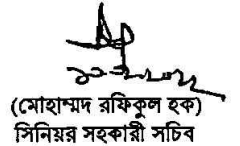 (মোহাম্মদ রফিকুল হক)
সিনিয়র সহকারী সচিব